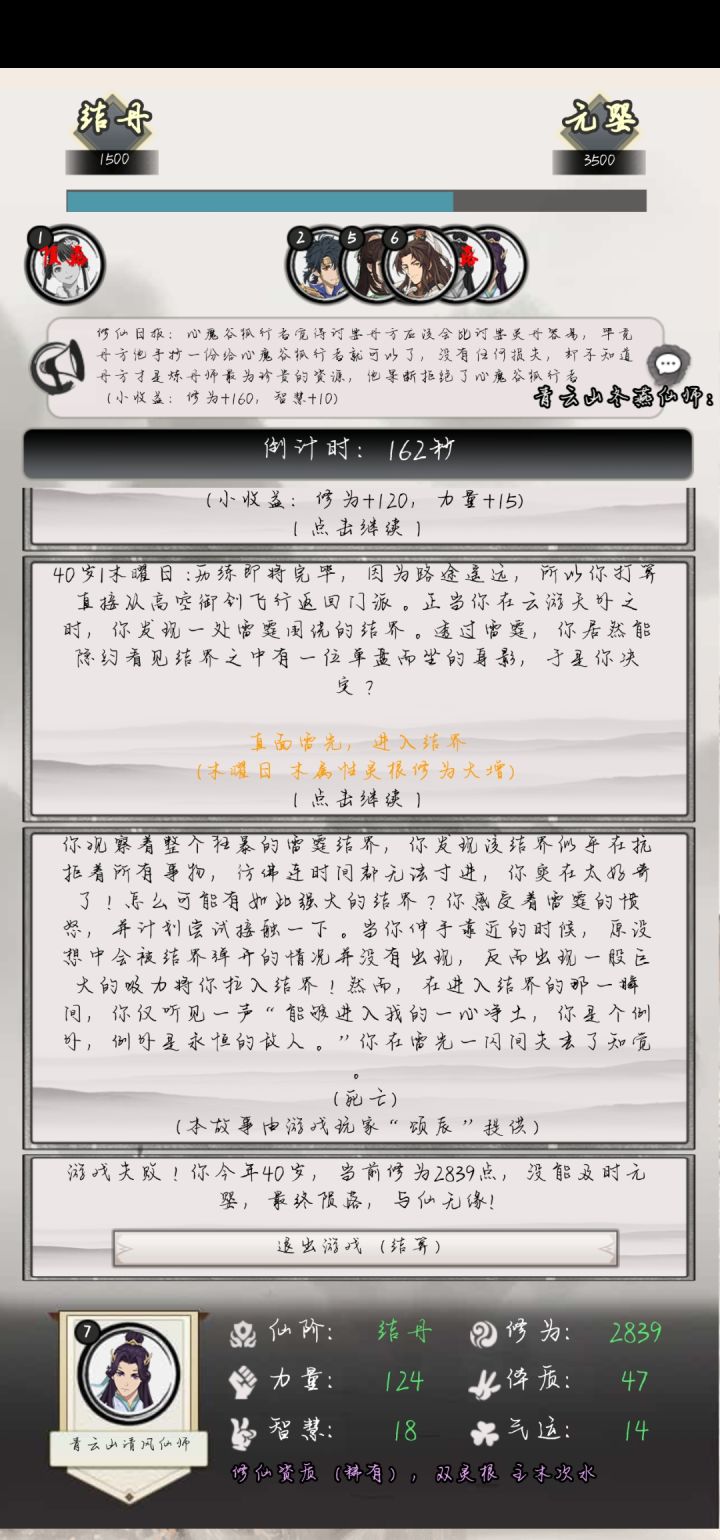 结丹
元婴
1500
3500
1
2
5
6
修仙日报：心魔谷孤行者觉得讨要丹方应该会比讨要灵丹容易，毕竟
丹方他手抄一份给心魔谷孤行者就可以了，没有任何损失，却不知道
丹方才是炼丹师最为珍贵的资源，他果断拒绝了心魔谷孤行者
（小收益：修为+160，智慧+10）
青云山冬燕仙师：
倒计时：162秒
（小收益：修为+120，力量+15）
[点击继续]
40岁|木曜日：历练即将完毕，因为路途遥远，所以你打算
直接从高空御剑飞行返回门派。正当你在云游天外之
时，你发现一处雷霆围绕的结界。透过雷霆，你居然能
隐约看见结界之中有一位单盘而坐的身影，于是你决
定？
直面雷光，进入结界
（木曜日 木属性灵根修为大增）
[点击继续]
你观察着整个狂暴的雷霆结界，你发现该结界似乎在抗
拒着所有事物，仿佛连时间都无法寸进，你实在太好奇
了！怎么可能有如此强大的结界？你感受着雷霆的愤
怒，并计划尝试接触一下。当你伸手靠近的时候，原没
想中会被结界弹开的情况并没有出现，反而出现一股巨
大的吸力将你拉入结界！然而，在进入结界的那一瞬
间，你仅听见一声“能够进入我的一心净土，你是个例
外，例外是永恒的敌人。”你在雷光一闪间失去了知觉
。
（死亡）
（本故事由游戏玩家“颂辰”提供）
游戏失败！你今年40岁，当前修为2839点，没能及时元
婴，最终陨落，与仙无缘！
退出游戏（结算）
7
青云山清风仙师
仙阶：结丹 修为：2839
力量：124 体质：47
智慧：18 气运：14
修仙资质（稀有），双灵根 主木次水